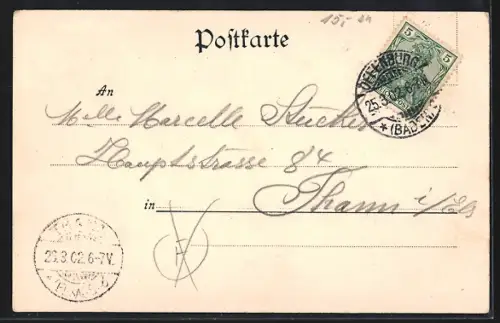 15,- 
Postkarte
5
OFFENBURG
25.3.02.6-
* (BADEN)
An
Mlle Marcelle Stucker
Hauptstrasse 84
in Thann i/Els
THANN
26.3.02.6-7V.